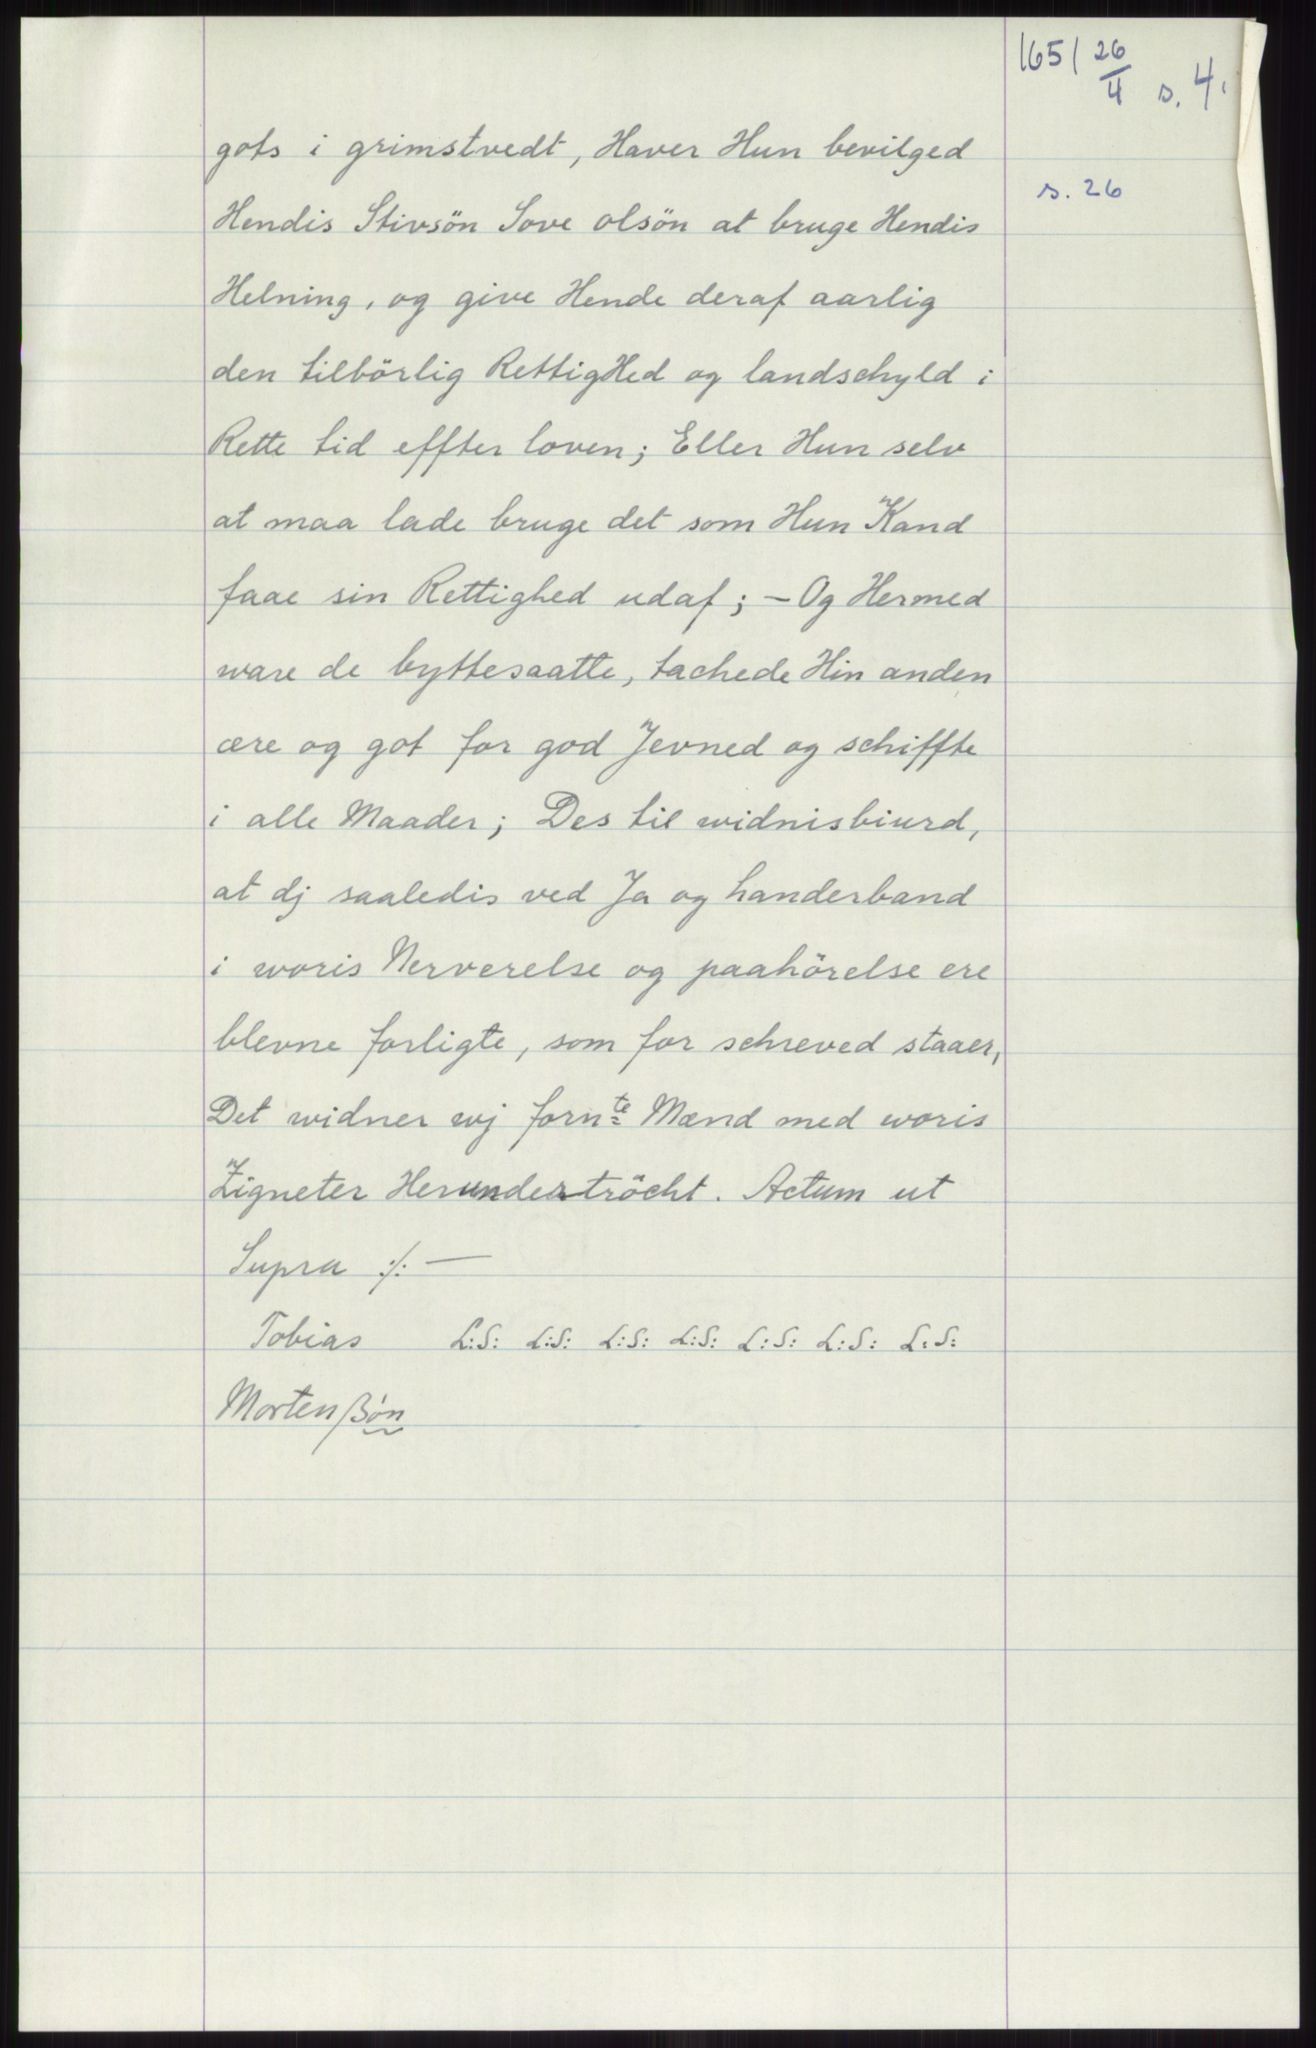 1651 26/4 s. 4.
s. 26
gots i grimstvedt, Haver Hun bevilged
Hendis Stivsön Sove olsön at bruge Hendis
Helning, og give Hende deraf aarlig
den tilbörlig RettigHed og landschyld i
Rette tid effter loven; Eller Hun selv
at maa lade bruge det som Hun Kand
faae sin Rettighed udaf; – Og Hermed
ware de byttesaatte, tachede Hin anden
ære og got for god Jevned og schiffte
i alle Maader; Des til widnisbiurd,
at dj saaledis ved Ja og handerband
i woris Nerverelse og paahörelse ere
blevne forligte, som for schreved staaer,
Det widner wj fornte Mænd med woris
Zigneter Herundertröcht. Actum ut
Supra :/: —
Tobias L:S: L:S: L:S: L:S: L:S: L:S: L:S:
Mortenßön